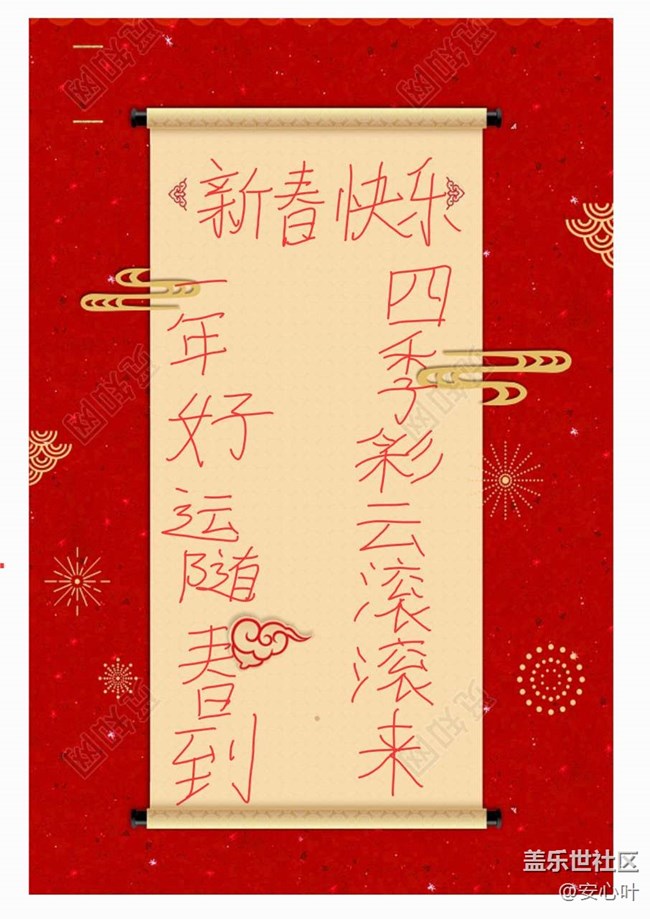 新春快乐
一年好运随春到
四季彩云滚滚来
盖乐世社区
@安心叶